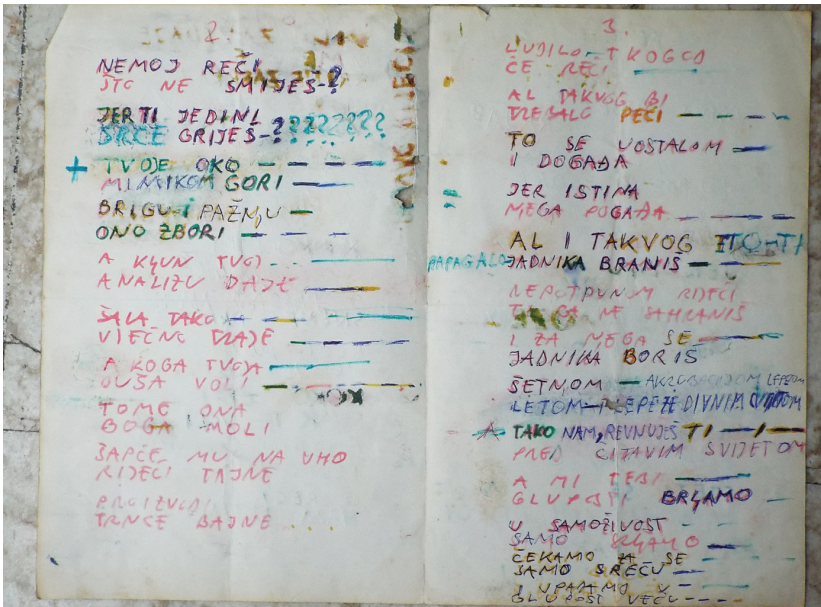 2.
NEMOJ REČI
ŠTO NE SMIJEŠ-?
JER TI JEDINI
SRCE GRIJEŠ-????????
+ TVOJE OKO
MIMIKOM GORI
BRIGU I PAŽNJU
ONO ZBORI
A KLJUN TVOJ
ANALIZU DAJE
ŠALA TAKO
VJEČNO TRAJE
A KOGA TVOJA
DUŠA VOLI
TOME ONA
BOGA MOLI
ŠAPČE MU NA UHO
RIJEČI TAJNE
PROIZVODI
TRNCE BAJNE ....
3.
LUDILO-TKOGOD
ČE REČI
AL TAKVOG BI
TREBALO PEČI
TO SE UOSTALOM
I DOGAĐA
JER ISTINA
MEGA POGAĐA
AL I TAKVOG TO-TI
PAPAGALO JADNIKA BRANIŠ
NEPOTPUNOM RIJEČI
SAHRANIŠ
I ZA MEGA SE
JADNIKA BORIŠ
ŠETNJOM
LETOM LEPEZE DIVNIM
A TAKO NAM, REVNUJEŠ TI
PRED ČITAVIM SVIJETOM
A MI TEBI
GLUPOSTI BRLJAMO
U SAMOŽIVOST
SAMO SRLJAMO
ČEKAMO ZA SE
SAMO SREČU
I UPADAMO U
GLUPOST VEČU---